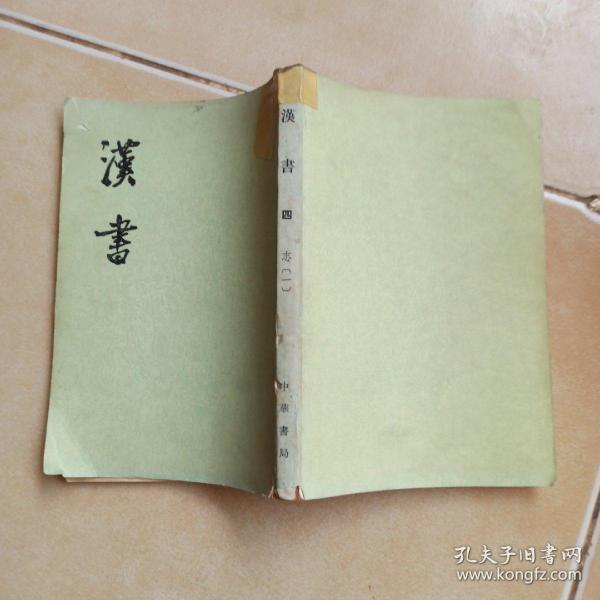 漢書
漢書
四
志〔一〕
中華書局
孔夫子旧书网
www.kongfz.com